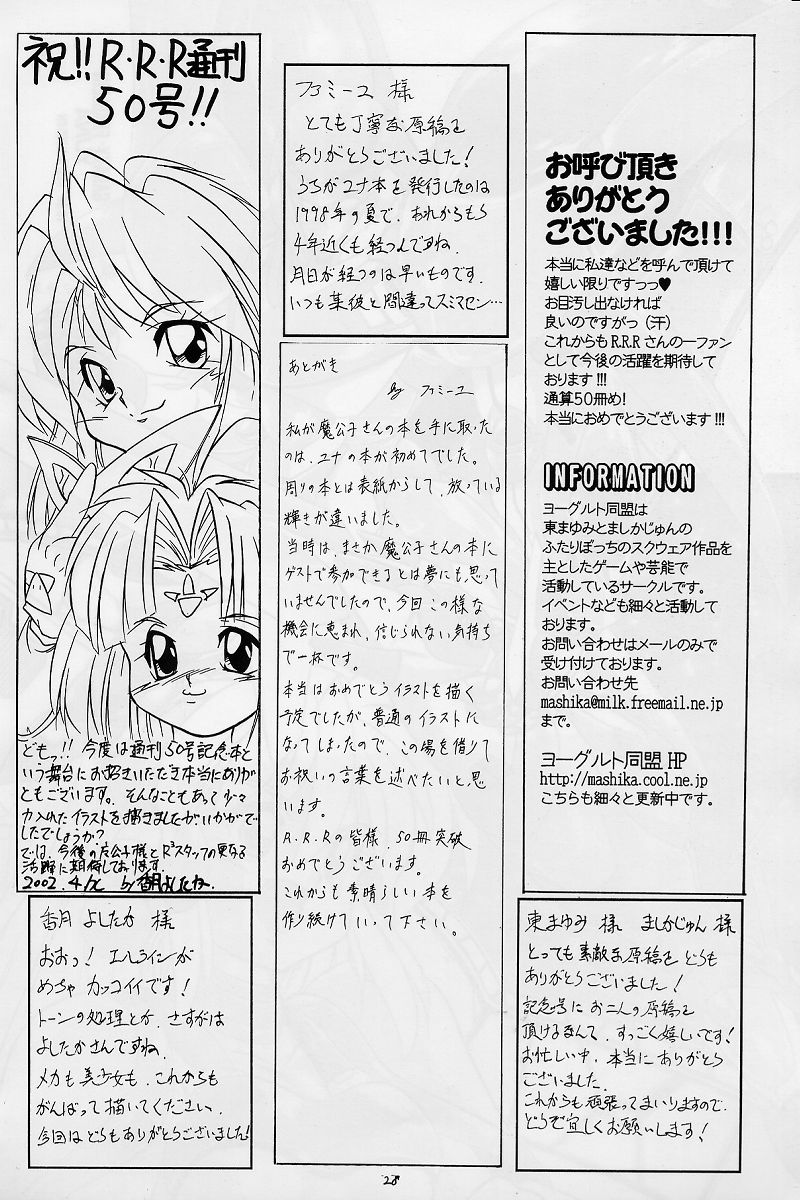 祝!!R・R・R通刊
50号!!
どもっ!!今度は通刊50号記念本と
いう舞台にお招きいただき本当にありが
ともございます。そんなこともあって少々
力入れたイラストを描きましたがいかがで
したでしょうか?
では、今後の公子様とR³スタッフの更なる
活躍に期待しております。
2002.4/ by香月よしたか
香月 よしたか 様
おおっ!エルラインが
めちゃ カッコイイです!
トーンの処理とか、さすがは
よしたかさんですね。
メカも美少女も、これからも
がんばって描いてください。
今回はどうもありがとうございました!
ファミーユ 様
とても丁寧な原稿を
ありがとうございました!
うちがユナ本を発行したのは
1998年の夏で、あれからもう
4年近くも経つんですね。
月日が経つのは早いものです。
いつも某彼と間違ってスミマセン…
あとがき
By ファミーユ
私が魔公子さんの本を手に取った
のは、ユナの本が初めてでした。
周りの本とは表紙からして、放っている
輝きが違いました。
当時は、まさか魔公子さんの本に
ゲストで参加できるとは夢にも思って
いませんでしたので、今回この様な
機会に恵まれ、信じられない気持ち
で一杯です。
本当はおめでとうイラストを描く
予定でしたが、普通のイラストに
なってしまったので、この場を借りて
お祝いの言葉を述べたいと思
います。
R.R.Rの皆様、50冊突破
おめでとうございます。
これからも素晴らしい本を
作り続けていって下さい。
お呼び頂き
ありがとう
ございました!!!
本当に私達などを呼んで頂けて
嬉しい限りですっっ♥
お目汚し出なければ
良いのですがっ(汗)
これからもR.R.Rさんの一ファン
として今後の活躍を期待して
おります!!!
通算50冊め!
本当におめでとうございます!!!
INFORMATION
ヨーグルト同盟は
東まゆみとましかじゅんの
ふたりぼっちのスクウェア作品を
主としたゲームや芸能で
活動しているサークルです。
イベントなども細々と活動して
おります。
お問い合わせはメールのみで
受け付けております。
お問い合わせ先
mashika@milk.freemail.ne.jp
まで。
ヨーグルト同盟 HP
http://mashika.cool.ne.jp
こちらも細々と更新中です。
東まゆみ 様 ましかじゅん 様
とっても素敵な原稿をどうも
ありがとうございました!
記念号にお二人の原稿を
頂けるなんて、すっごく嬉しいです!
お忙しい中、本当にありがとう
ございました。
これからも頑張ってまいりますので、
どうぞ宜しくお願いします!
28